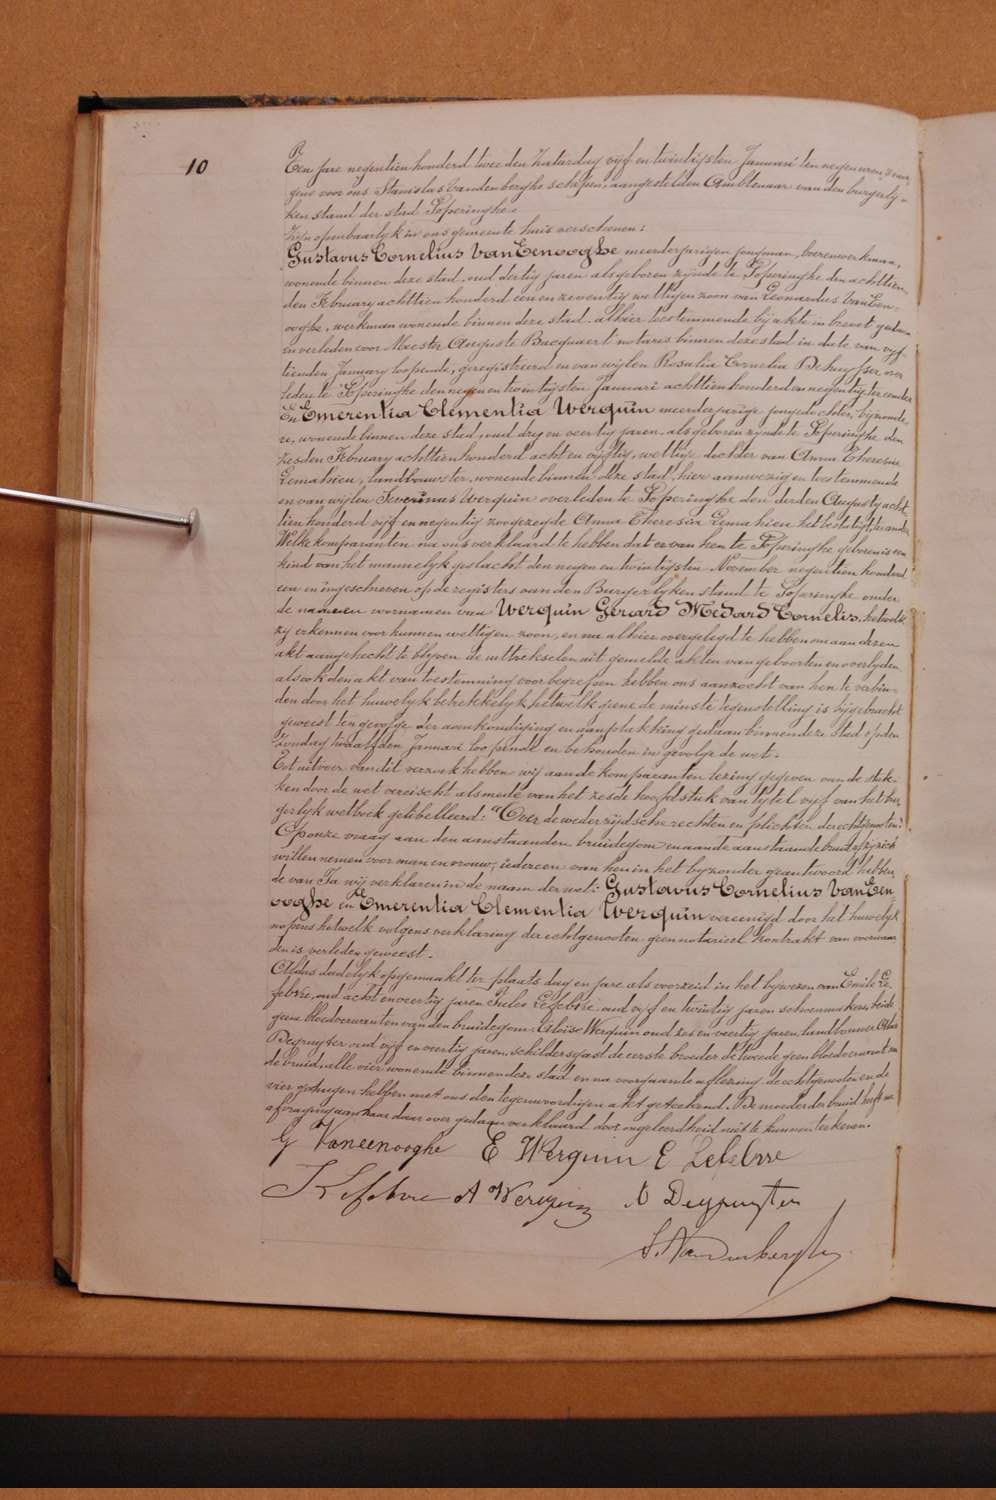 10
Een jare negentien honderd twee den Zaterdag vijf en twintigsten Januari ten negen ure, 's mor-
gens voor ons Stanislas Vandenberghe schepen, aangestelden Ambtenaar van den burgerly-
ken stand der stad Poperinghe.
Zijn openbaarlyk in ons gemeente huis verschenen:
Gustavus Cornelius VanEenooghe meerderjarigen jongman, boerenwerkman,
wonende binnen deze stad, oud dertig jaren als geboren zynde te Poperinghe den achttien-
den February achttien honderd een en zeventig wettigen zoon van Leonardus VanEen-
ooghe, werkman wonende binnen deze stad, alhier toestemmende bij akte in brevet gedaan
en verleden voor Meester Auguste Bacquaert notaris binnen deze stad in date van vyf-
tienden January loopende, geregistreerd en van wylen Rosalia Cornelia over
leden te Poperinghe den negen en twintigsten Januari achttien honderd en negentig, ter eender
En Emerentia Clementia Werquin meerderjarige jongedochter, byzonde-
re, wonende binnen deze stad, oud dry en veertig jaren, als geboren zynde te Poperinghe den
zesden February achttien honderd acht en vyftig, wettige dochter van Anna Theresia
Lemahieu, landbouwster, wonende binnen deze stad, hier aanwezig en toestemmende
en van wylen Severinus Werquin overleden te Poperinghe den derden Augusty acht
tien honderd vyf en negentig zoo gezegde Anna Theresia Lemahieu het bestatigt, ter ander
Welke komparanten na ons verklaard te hebben dat er van hen te Poperinghe geboren is een
kind van het mannelyk geslacht den negen en twintigsten November negentien honderd
een en ingeschreven op de registers van den Burgerlyken stand te Poperinghe onder
de namen en voornamen van Werquin Gerard Medard Cornelis, hetwelk
zij erkennen voor hunnen wettigen zoon, en na alhier overgelegd te hebben om aan dezen
akt aangehecht te blyven de uittrekselen uit gemelde akten van geboorten en overlyden
alsook den akt van toestemming voorbegrepen hebben ons aanzocht van hen te verbin-
den door het huwelyk betrekkelyk hetwelk geene de minste tegenstelling is bygebracht
geweest ten gevolge der aankondiging en aanplakking gedaan binnen deze stad op den
Zondag twaalfden Januari loopende en behouden in gevolge de wet.
Tot uitvoer van dit verzoek hebben wij aan de komparanten lezing gegeven van de stuk-
ken door de wet vereischt alsmede van het zesde hoofdstuk van tytel vyf van het bur
gerlyk wetboek getibelleerd: "Over de wederzijdsche rechten en plichten der echtgenooten."
Op onze vraag aan den aanstaanden bruidegom en aan de aanstaande bruid of zy zich
willen nemen voor man en vrouw, iedereen van hen in het byzonder geantwoord hebben,
de van Ja wij verklaren in de naam der wet: Gustavus Cornelius VanEen-
ooghe en Emerentia Clementia Werquin vereenigd door het huwelyk
nopens hetwelk volgens verklaring der echtgenooten geen notarieel kontrakt van voorwaar
den is verleden geweest.
Aldus dadelyk opgemaakt ter plaats dag en jare als voorzeid in het bywezen van Emile Le-
febvre, oud acht en veertig jaren Jules Lefebvre, oud vyf en twintig jaren schoenmakers, beide
geene bloedverwanten van den bruidegom, Aloise Werquin oud zes en veertig jaren, landbouwer
Depuyter oud vyf en veertig jaren, schildersgast de eerste broeder de tweede geen bloedverwant van
de bruid alle vier wonende binnen deze stad en na voorgaande aflezing de echtgenooten en de
vier getuigen hebben met ons den tegenwoordigen akt geteekend. De moeder der bruid heeft na
afvraging aan haar daar over gedaan verklaard door ongeleerdheid niet te kunnen teekenen.
G Vaneenooghe E Werquin E Lefebvre
J Lefebvre A Werquin
S. Vandenberghe